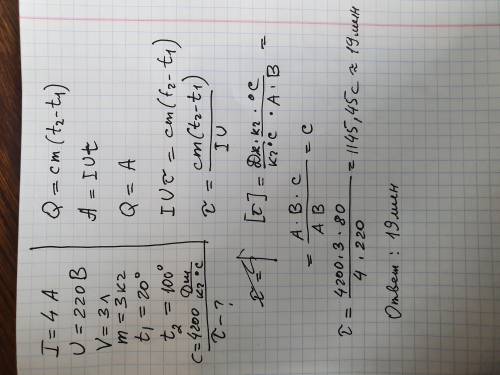 I = 4 А
U = 220 В
V = 3 л
m = 3 кг
t₁ = 20°
t₂ = 100°
C = 4200 Дж/кг °С
τ - ?
Q = cm(t₂-t₁)
A = IUt
Q = A
IUτ = cm(t₂-t₁)
τ = cm(t₂-t₁)/IU
[τ] = Дж · кг · °С/кг °С · А · В =
= А · В · с/АВ = с
τ = 4200 · 3 · 80/4 · 220 = 1145,45 с ≈ 19 мин
Ответ: 19 мин